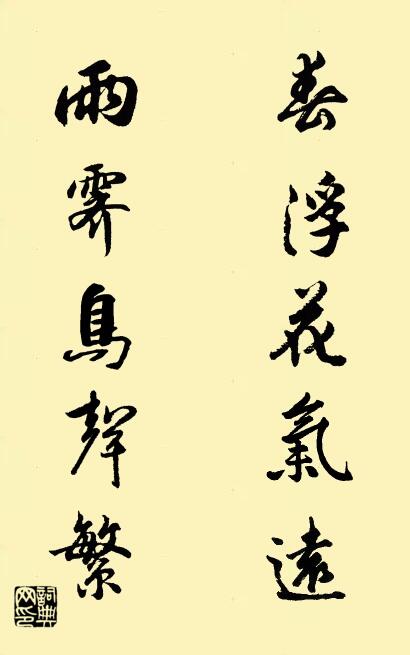 春浮花氣遠
雨霽鳥聲繁
詞典網印